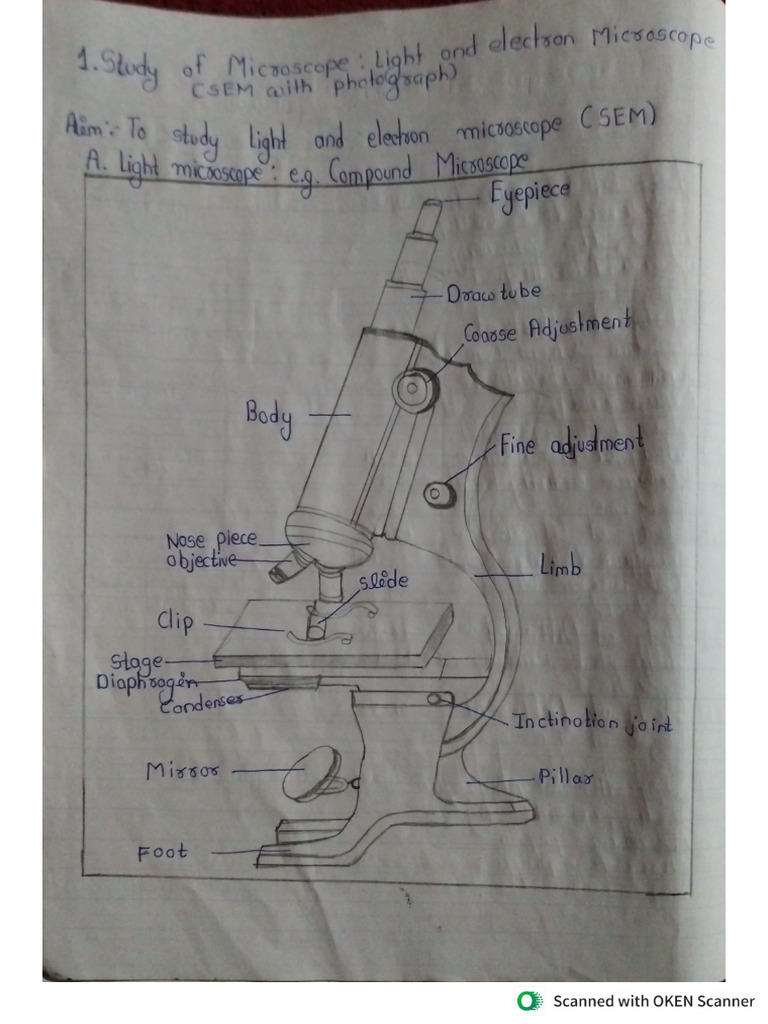 1. Study of Microscope: Light and electron Microscope
(SEM with photograph)
Aim:- To study Light and electron microscope (SEM)
A. Light microscope: e.g. Compound Microscope
Eyepiece
Draw tube
Coarse Adjustment
Body
Fine adjustment
Nose piece
objective
Limb
slide
Clip
Stage
Diaphragm
Condenser
Inctination joint
Mirror
Pillar
Foot
Scanned with OKEN Scanner